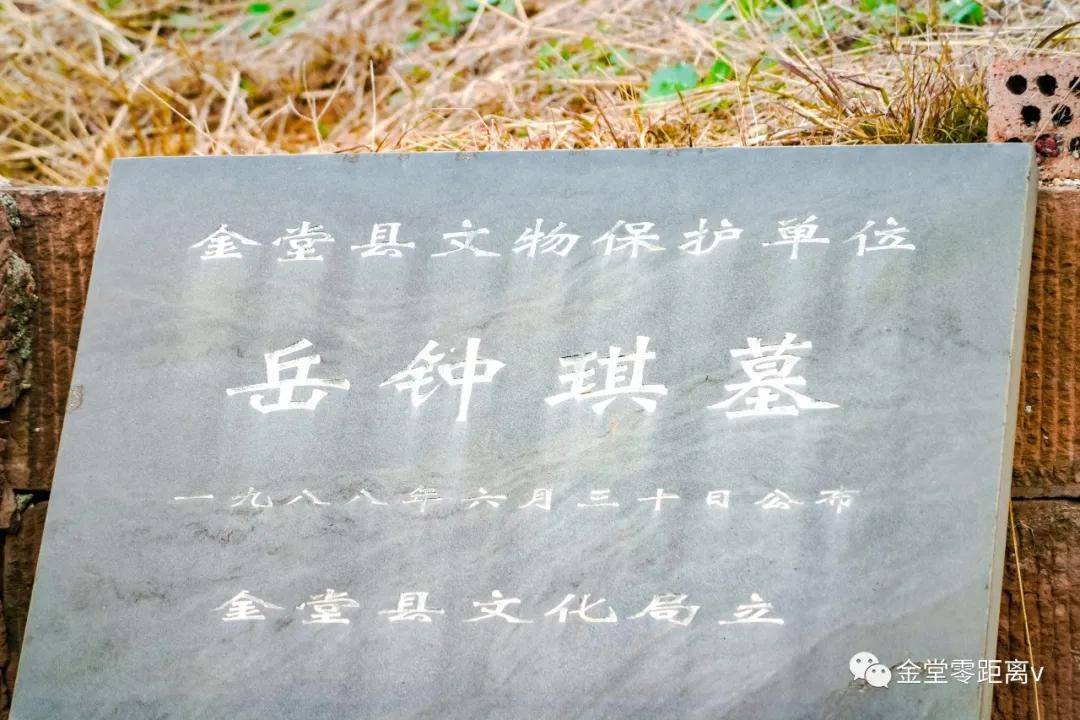 金堂县文物保护单位
岳钟琪墓
一九八八年六月三十日公布
金堂县文化局立
金堂零距离v